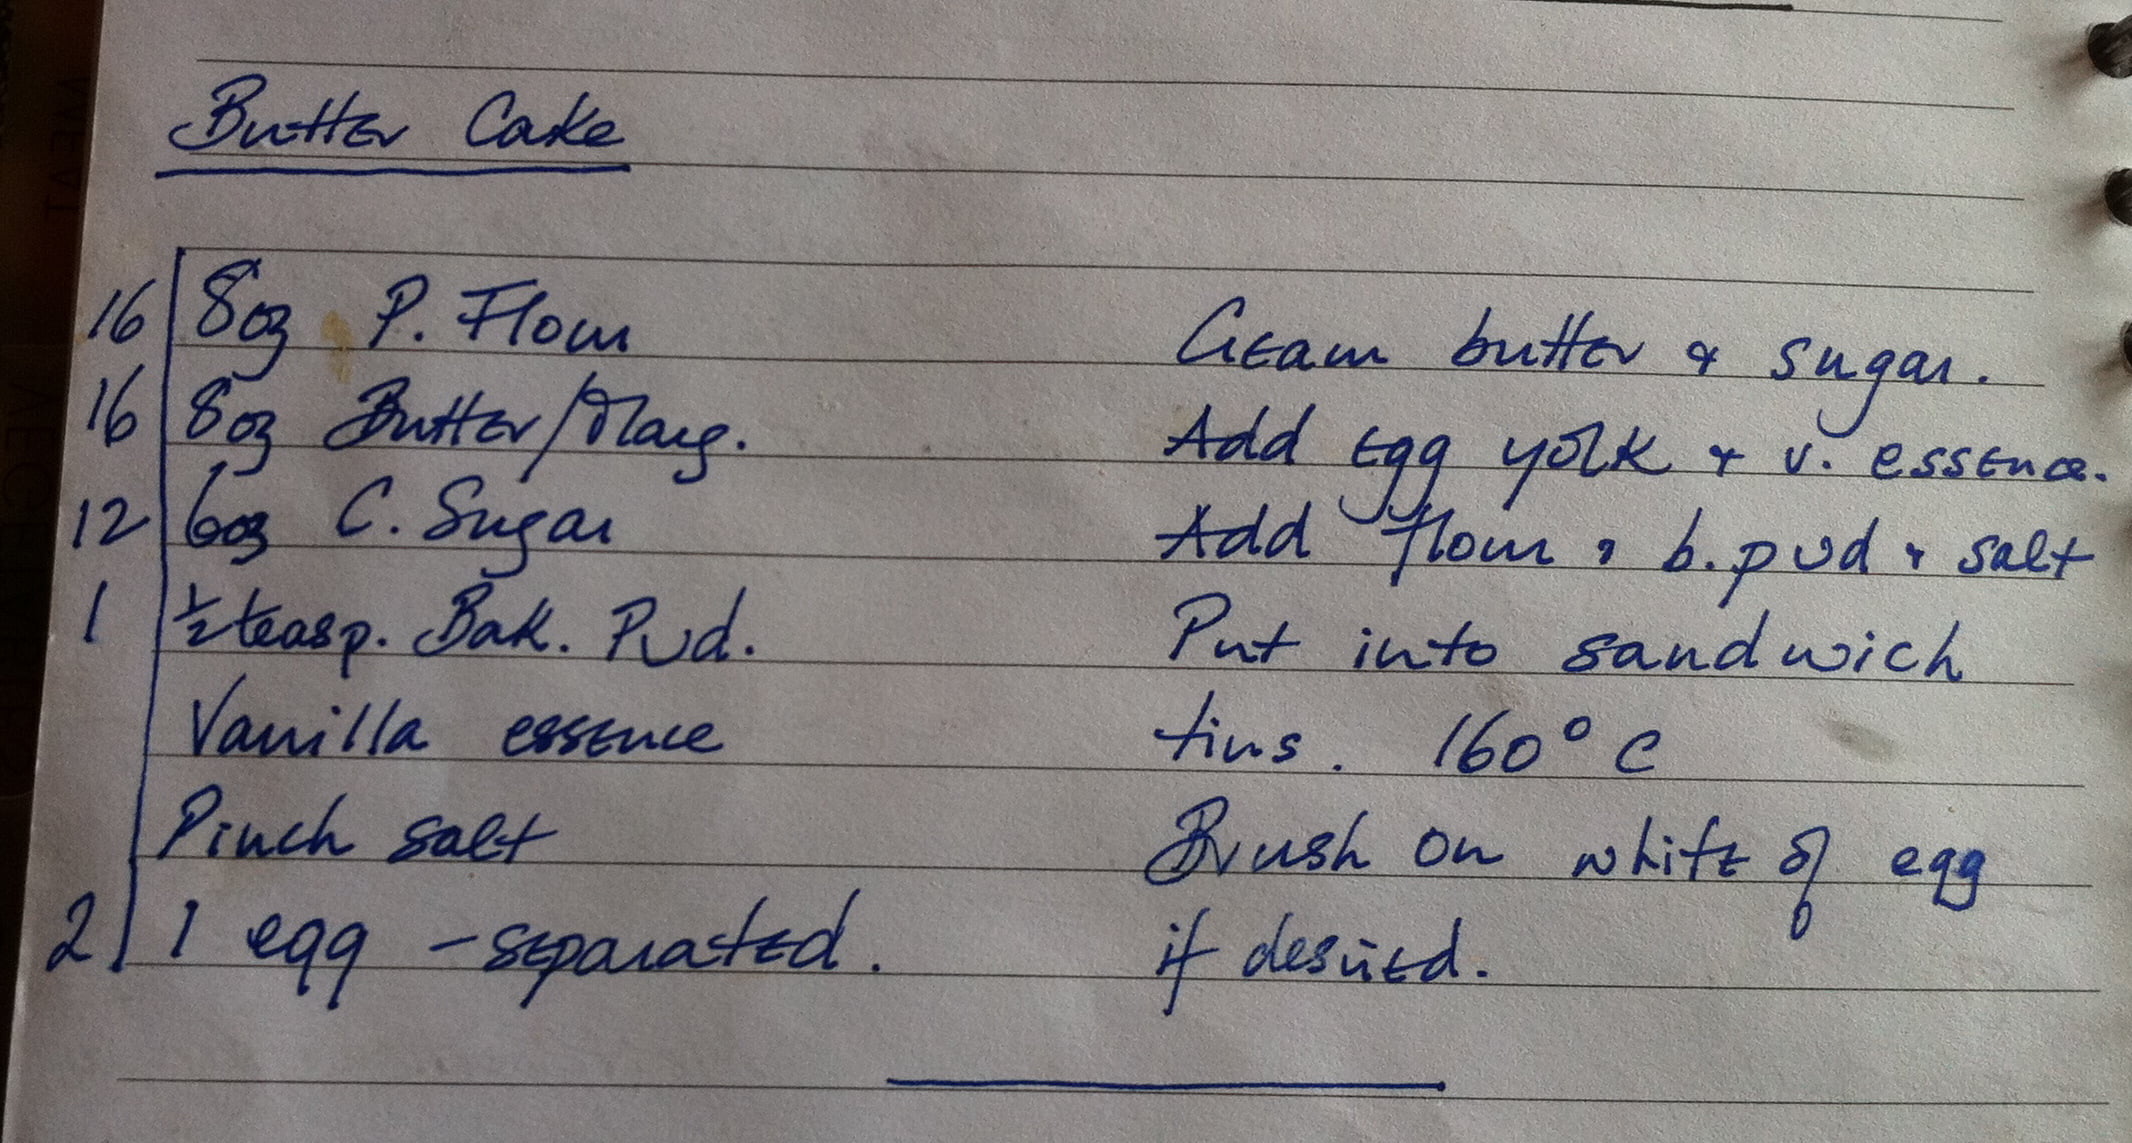 Butter Cake
16 8oz P. Flour
16 8oz Butter/Marg.
12 6oz C. Sugar
1 ½ teasp. Bak. Pud.
Vanilla essence
Pinch salt
2 1 egg - separated.
Cream butter & sugar.
Add egg yolk + v. essence.
Add flour, b. pud + salt
Put into sandwich
tins. 160° C
Brush on white of egg
if desired.